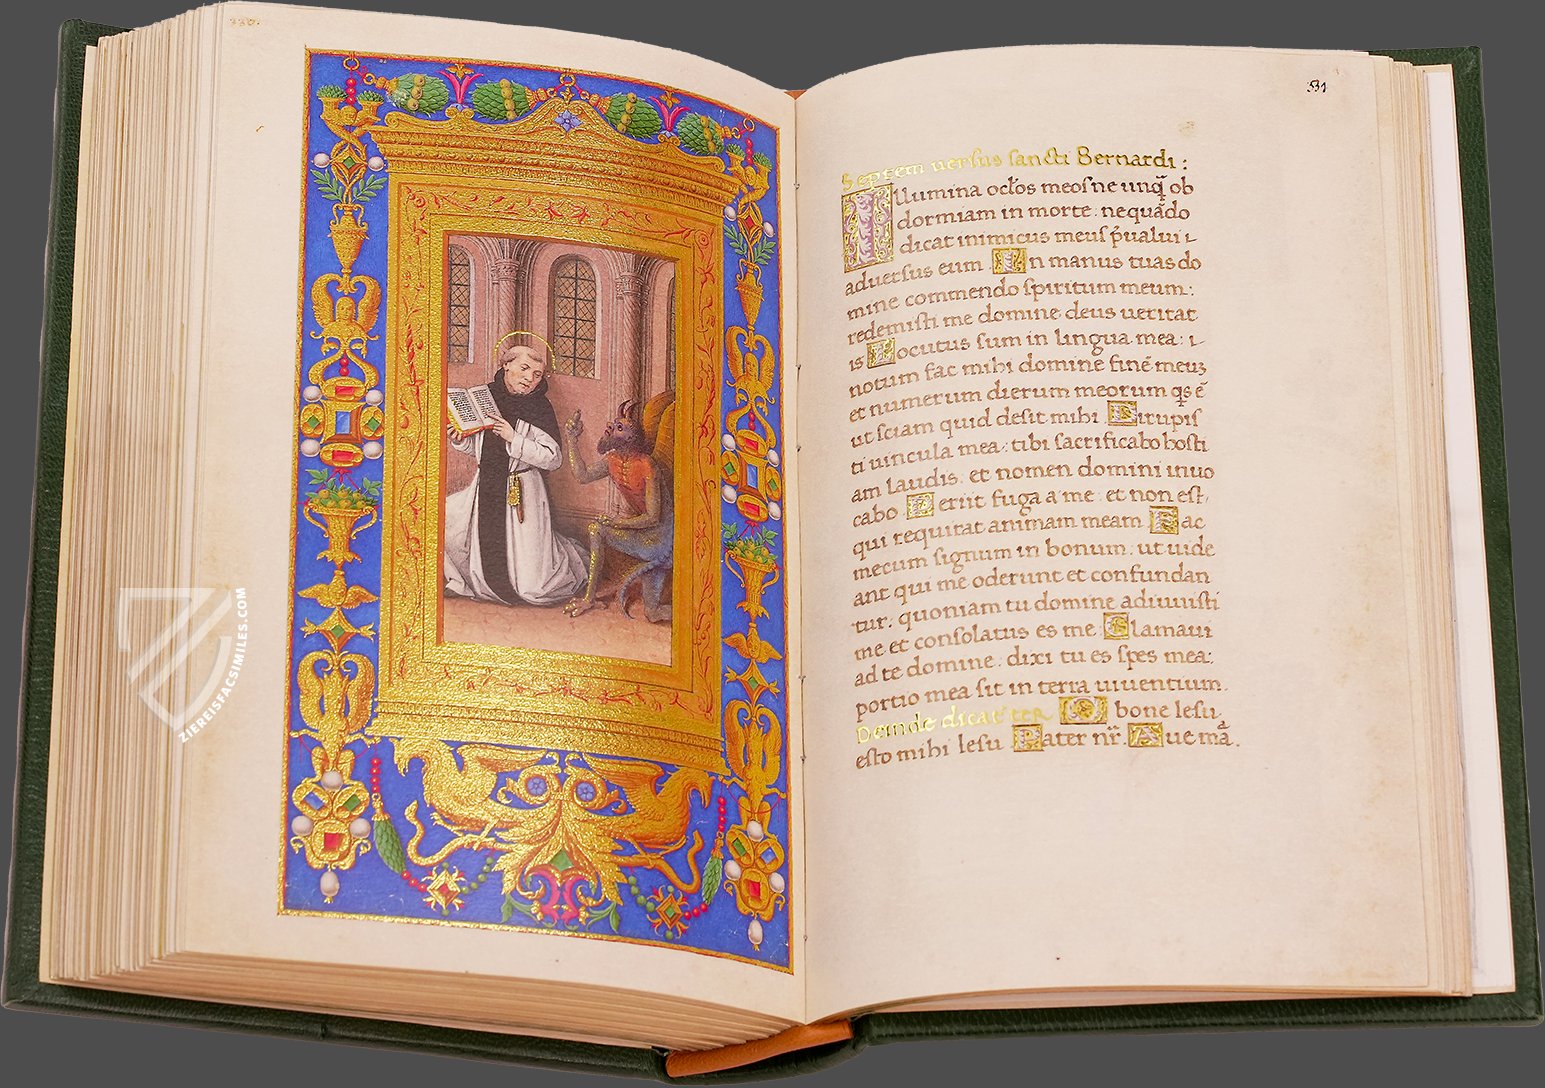 330.
ZIEREISFACSIMILES.COM
331
Septem uersus sancti Bernardi :
Illumina ocl̃os meos ne unq̃ ob
dormiam in morte . nequãdo
dicat inimicus meus p̃ualui ı
aduersus eum In manus tuas do
mine commendo spiritum meum :
redemisti me domine deus ueritat
is Locutus sum in lingua mea : ı
notum fac mihi domine finẽ meuʒ
et numerum dierum meorum q̃s ẽ
ut sciam quid desit mihi Dirupis
ti uincula mea : tibi sacrificabo hosti
am laudis . et nomen domini inuo
cabo Periit fuga a me : et non est
qui requirat animam meam Fac
mecum signum in bonum . ut uide
ant qui me oderunt et confundan
tur . quoniam tu domine adiuuisti
me et consolatus es me Clamaui
ad te domine . dixi tu es spes mea :
portio mea sit in terra uiuentium .
Deinde dicat' ter O bone Iesu
esto mihi Iesu Pater nr̃ . Aue mã .